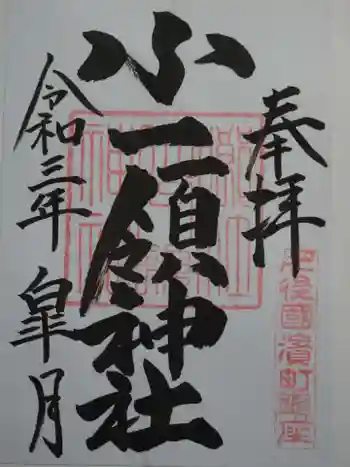 奉拝
肥後國濱町鎮座
小一領神社
令和三年
皐月